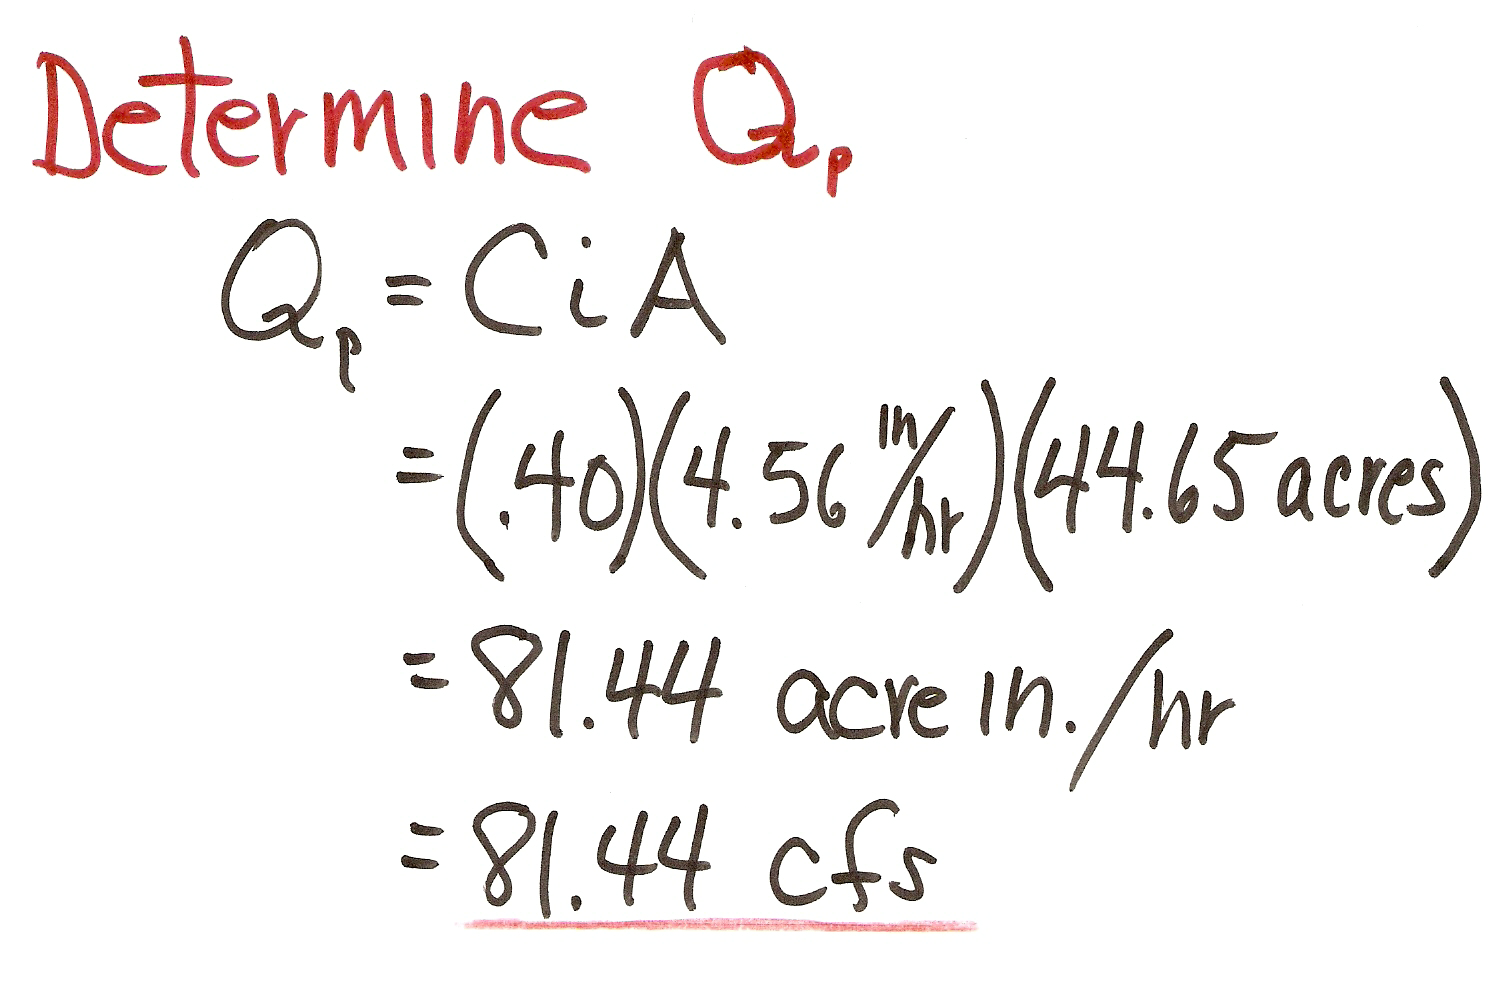 Determine Qp
Qp = CiA
= (.40)(4.56 in/hr)(44.65 acres)
= 81.44 acre in./hr
= 81.44 cfs